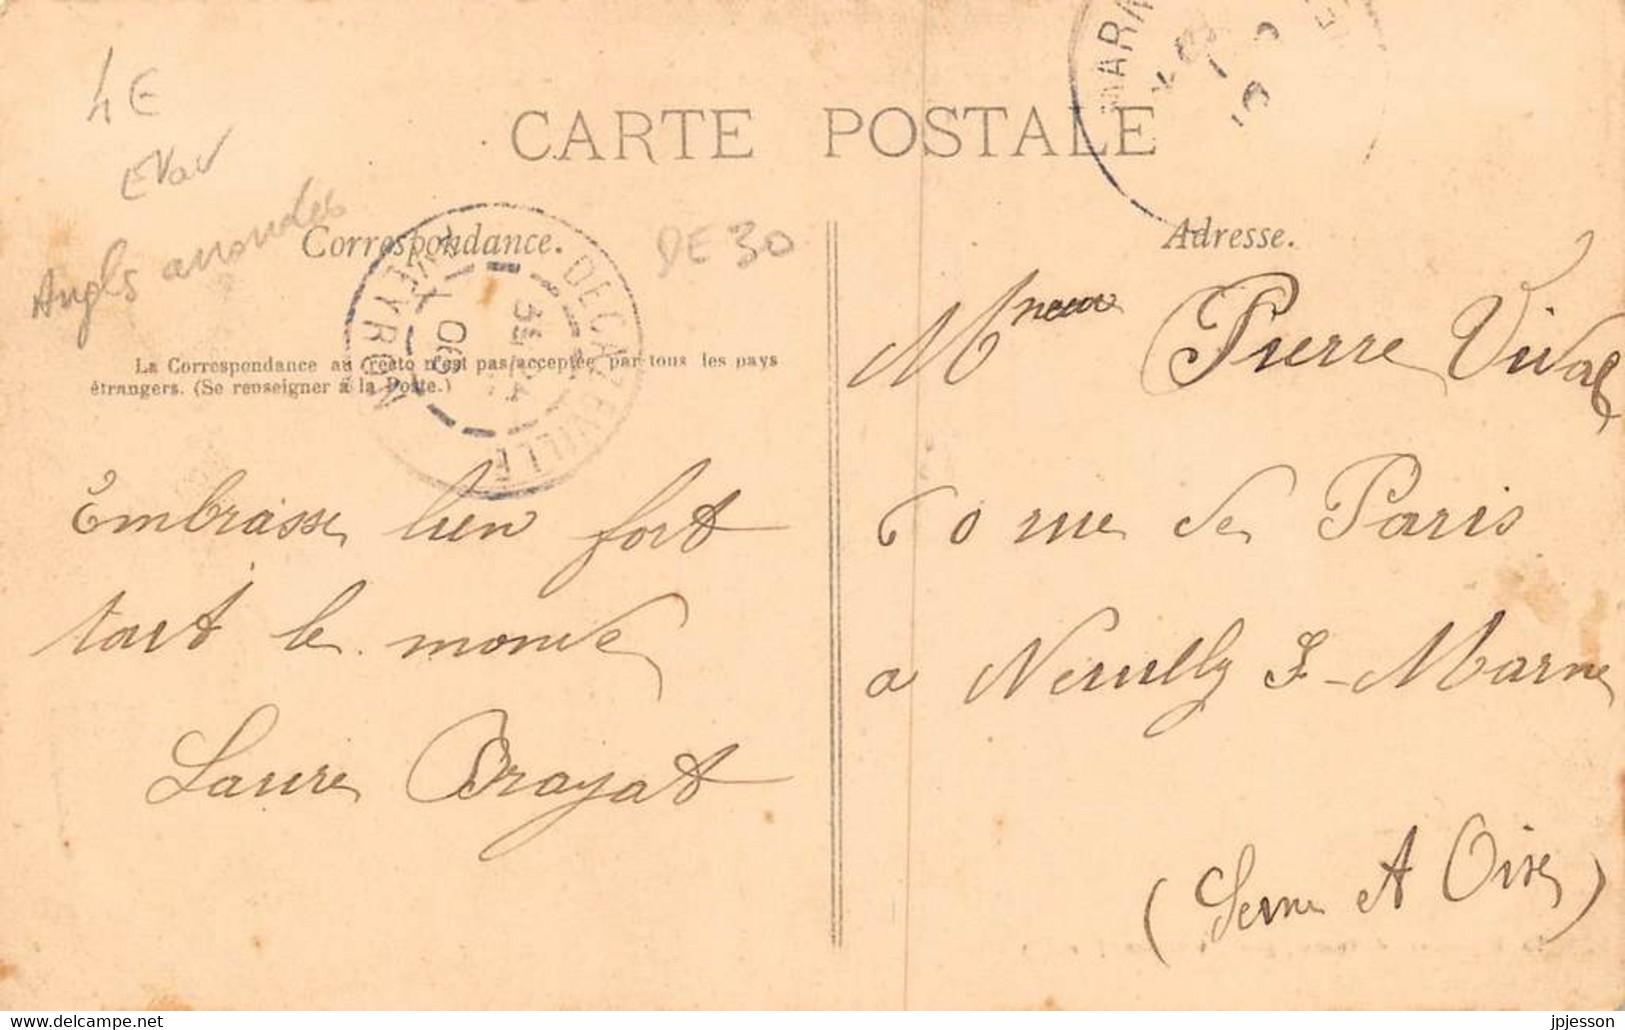 4E
EVav
Angls arrondes
CARTE POSTALE
Correspondance.
DE 30
Adresse.
DECAZEVILLE
AVEYRON
MARN
La Correspondance au recto n'est pas acceptée par tous les pays
étrangers. (Se renseigner à la Poste.)
Embrasse bien fort
tout le monde
Laure Brayat
Pierre Vival
60 rue de Paris
a Neuilly S-Marne
(Seine et Oise)
www.delcampe.net
jpjesson